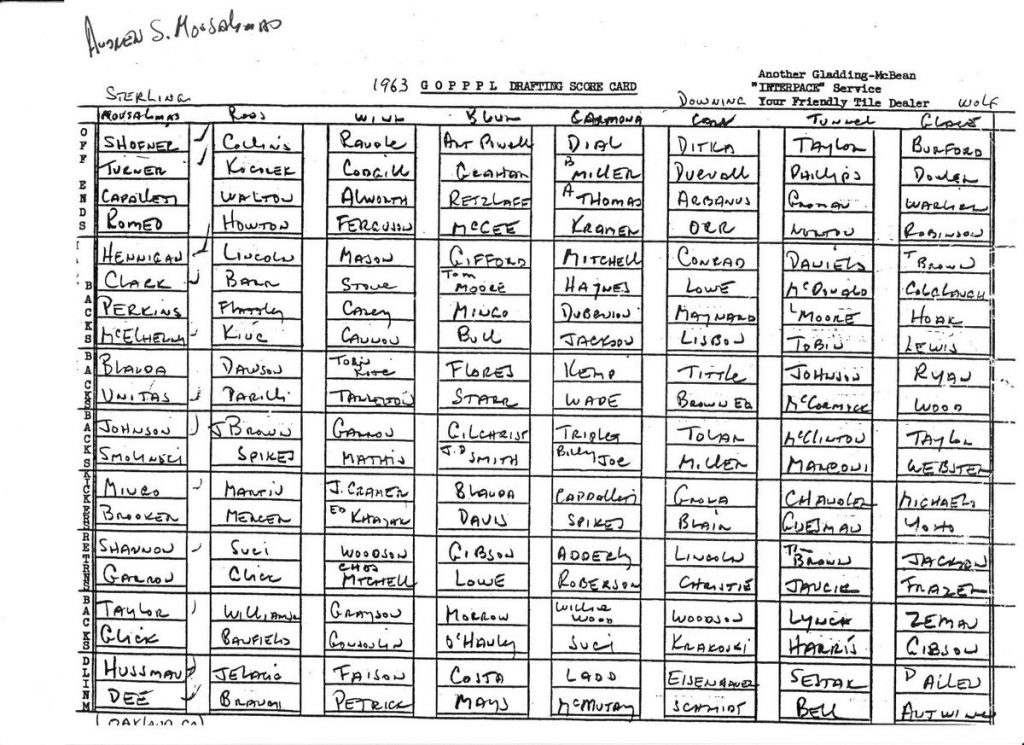 Andren S. Mousalimas
1963 G O P P P L DRAFTING SCORE CARD
Another Gladding-McBean
"INTERPACE" Service
Your Friendly Tile Dealer
STERLING DOWNING WOLF
MOUSALIMAS ROSS WINK BLUM CARMONA TUNNEL
OFF ENDS
SHOFNER COLLINS Art Powell DIAL DITKA TAYLOR BURFORD
TURNER GRAHAM B MILLER DUEVALL PHILLIPS DOWLER
CAPALLETI WALTON ALWORTH RETZLAFF A THOMAS ARBANUS WARLICK
ROMEO HOWTON FERGUSON McGEE KRAMER ORR NORTON ROBINSON
BACKS
HENNIGAN LINCOLN MASON GIFFORD MITCHELL CONRAD DANIELS T BROWN
CLARK BARR STOVE TOM MOORE HAYNES LOWE McDONALD COLCLOUGH
PERKINS CAREY MINGO DUBENION MAYNARD L MOORE HOAK
McELHENY KING CANNON BULL JACKSON LISBON TOBIN LEWIS
BACKS
BLANDA DAWSON TOBIN FLORES KEMP TITTLE JOHNSON RYAN
UNITAS PARILLI STARR WADE BROWN ED McCORMICK WOOD
BACKS
JOHNSON J BROWN GARRON GILCHRIST TRIPLET TOLAR McCLINTON TAYLOR
SMOLINSKI SPIKES MATHIS J.D SMITH BILLY JOE MILLER MARCONI WEBSTER
KICKERS
MINGO MARTIN J. CRAMER BLANDA CAPPALLETI GROZA CHANDLER MICHAELS
BROOKER MERCER ED KHAYAT DAVIS SPIKES BLAIR GUESMAN YOHO
RETRNS
SHANNON SUCI WOODSON GIBSON ADDERLY LINCOLN TM BROWN JACKSON
GARRON GLICK CHAS MITCHELL LOWE ROBERSON CHRISTIE JANCIK FRAZER
BACKS
TAYLOR WILLIAMS GRAYSON MORROW WILLIE WOOD WOODSON LYNCH ZEMAN
GLICK BANFIELD GONSOULIN O'HANLEY SUCI KRAKOSKI HARRIS GIBSON
D LINM
HUSSMAN JELACIC FAISON COSTA LADD EISENHAUER SESTAK D ALLEN
DEE BRAUDI PETRICK MAYS McMURTAY SCHMIDT BELL AUTWINE
(OAKLAND CA)